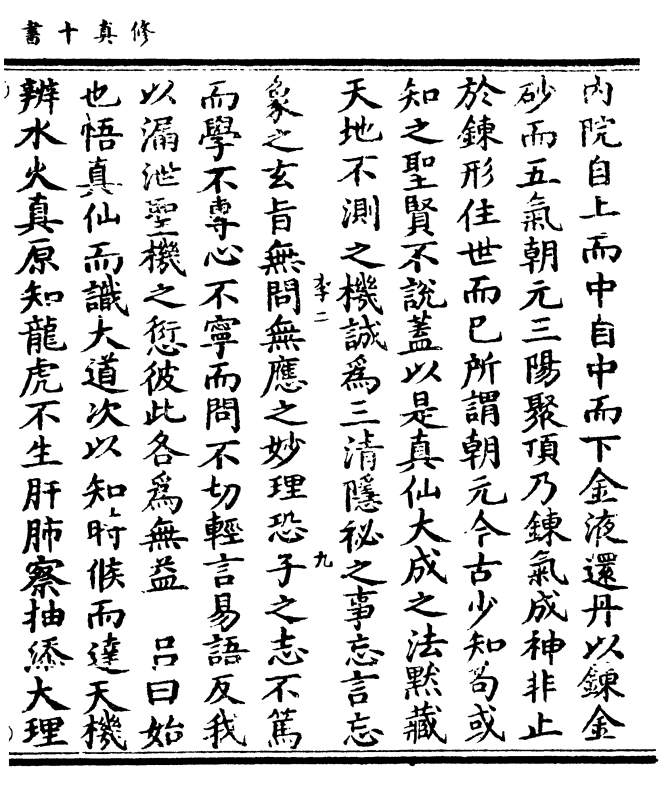 修真十書
內院自上而中自中而下金液還丹以鍊金
砂而五氣朝元三陽聚頂乃鍊氣成神非止
於鍊形住世而已所謂朝元今古少知苟或
知之聖賢不說蓋以是真仙大成之法默藏
天地不測之機誠爲三清隱祕之事忘言忘
李二
九
象之玄旨無問無應之妙理恐子之志不篤
而學不專心不寧而問不切輕言易語反我
以漏泄聖機之愆彼此各爲無益　呂曰始
也悟真仙而識大道次以知時候而達天機
辨水火真原知龍虎不生肝肺察抽添大理